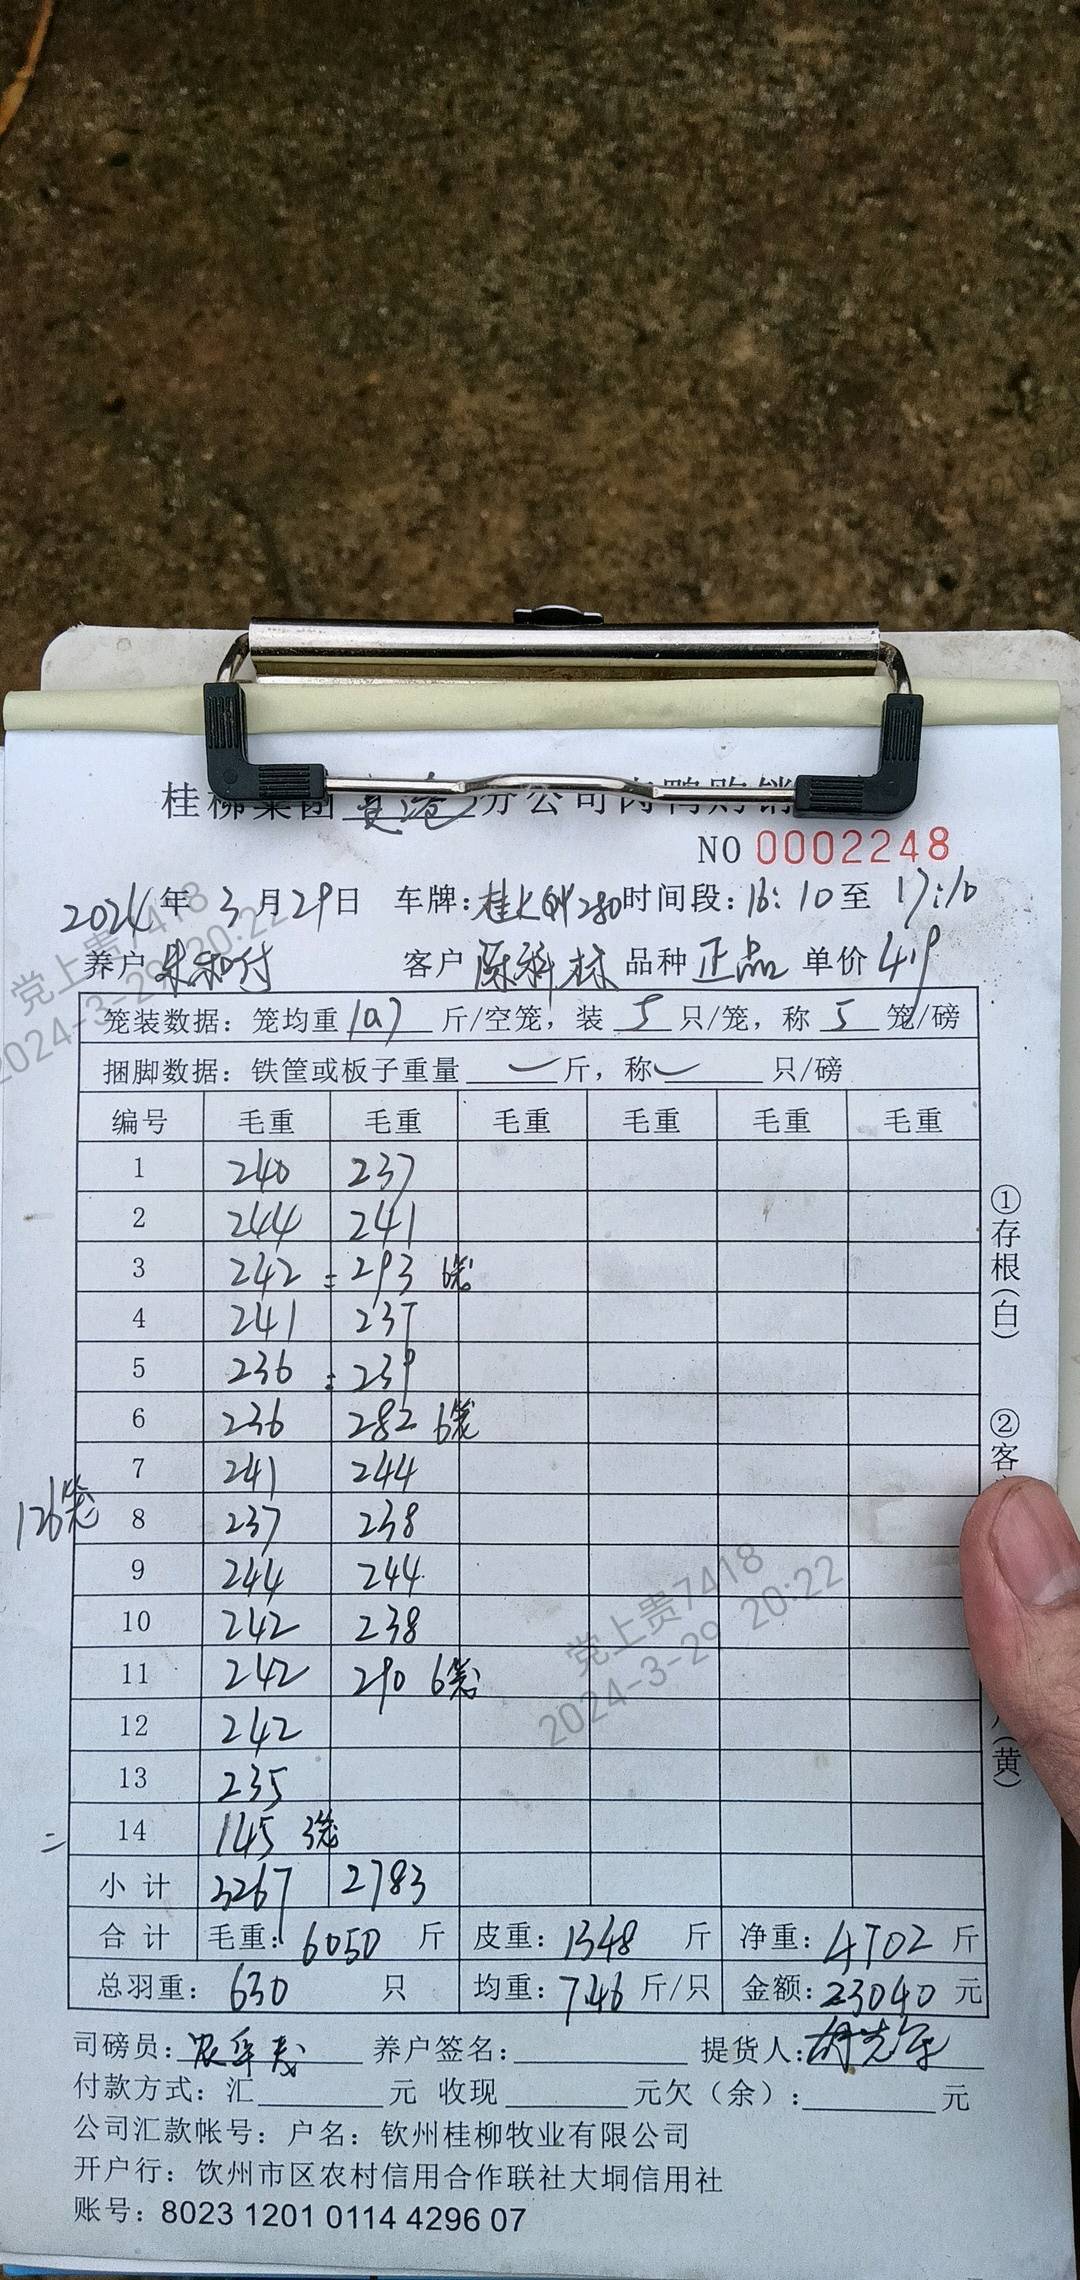 桂柳集团贵港分公司肉鸭购销
NO 0002248
2024年3月29日 车牌: 280 时间段:16:10至17:10
养户 朱和付 客户 陈科林 品种 正品 单价 4.9
笼装数据: 笼均重 10.7 斤/空笼, 装 5 只/笼, 称 5 笼/磅
捆脚数据: 铁筐或板子重量 斤, 称 只/磅
编号 毛重 毛重 毛重 毛重 毛重 毛重
1 240 237
2 244 241
3 242 293 6笼
4 241 237
5 236 239
6 236 282 6笼
7 241 244
126笼 8 237 238
9 244 244
10 242 238
11 242 290 6笼
12 242
13 235
14 145 3笼
小计 3267 2783
合计 毛重: 6050 斤 皮重: 1348 斤 净重: 4702 斤
总羽重: 630 只 均重: 7.46 斤/只 金额: 23040 元
司磅员: 养户签名: 提货人:
付款方式: 汇 元 收现 元欠(余): 元
公司汇款帐号: 户名: 钦州桂柳牧业有限公司
开户行: 钦州市区农村信用合作联社大垌信用社
账号: 8023 1201 0114 4296 07
①存根(白) ②客
(黄)
党上贵7418
2024-3-29 20:22
党上贵7418
2024-3-29 20:22